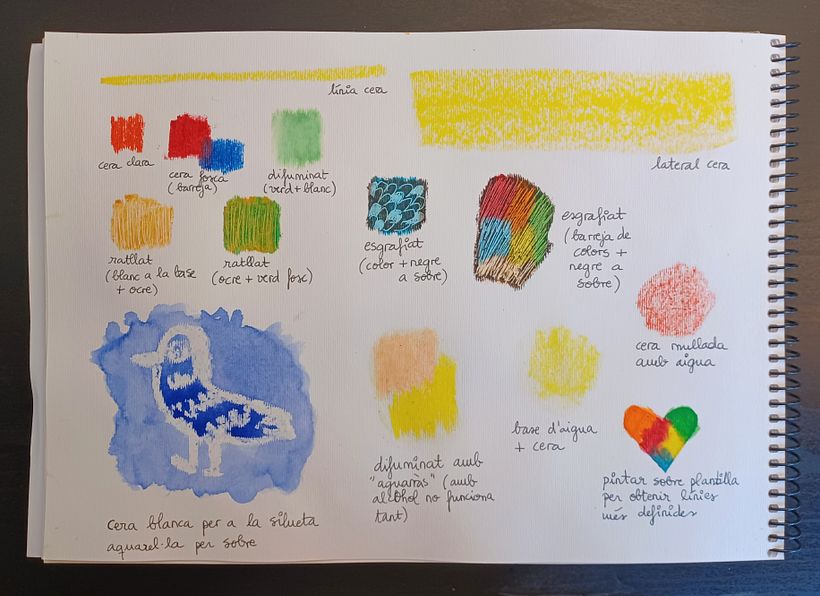 línia cera
lateral cera
cera clara
cera fosca
(barreja)
difuminat
(verd + blanc)
ratllat
(blanc a la base
+ ocre)
ratllat
(ocre + verd fosc)
esgrafiat
(color + negre
a sobre)
esgrafiat
(barreja de
colors +
negre a
sobre)
cera mullada
amb aigua
cera blanca per a la silueta
aquarel·la per sobre
difuminat amb
"aguaràs" (amb
alcohol no funciona
tant)
base d'aigua
+ cera
pintar sobre plantilla
per obtenir línies
més definides